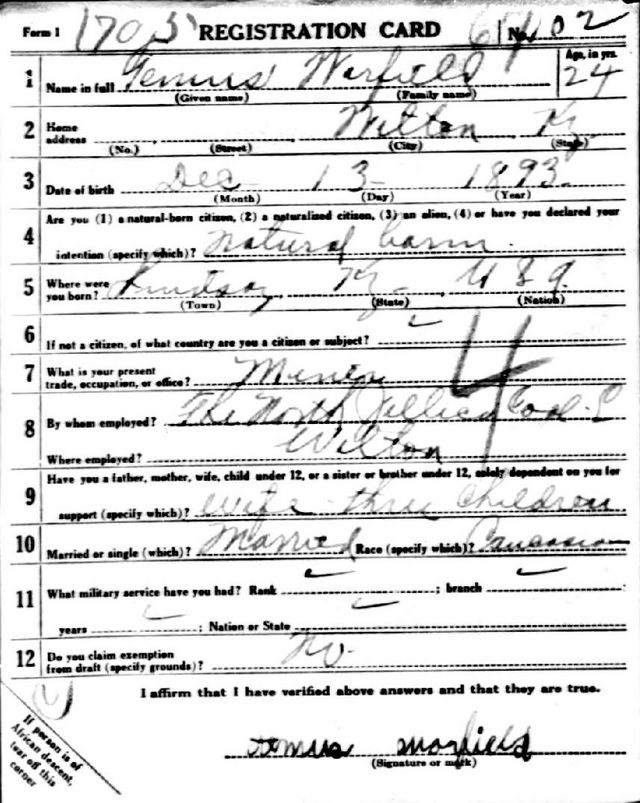 Form 1 1703 REGISTRATION CARD No. 102
1 Name in full Warfield Age, in yrs. 24
(Given name) (Family name)
2 Home address Wilton, Ky
(No.) (Street) (City) (State)
3 Date of birth Dec 13 1893
(Month) (Day) (Year)
4 Are you (1) a natural-born citizen, (2) a naturalized citizen, (3) an alien, (4) or have you declared your
intention (specify which)? Natural born.
5 Where were you born? Ky U S a.
(Town) (State) (Nation)
6 If not a citizen, of what country are you a citizen or subject?
7 What is your present trade, occupation, or office? Miner
4
8 By whom employed? The North Jellico Coal
Where employed? Wilton
9 Have you a father, mother, wife, child under 12, or a sister or brother under 12, solely dependent on you for
support (specify which)? wife three Children
10 Married or single (which)? Married Race (specify which)? Caucasian
11 What military service have you had? Rank ; branch
years ; Nation or State
12 Do you claim exemption from draft (specify grounds)? No.
I affirm that I have verified above answers and that they are true.
If person is of
African descent,
tear off this
corner
(Signature or mark)